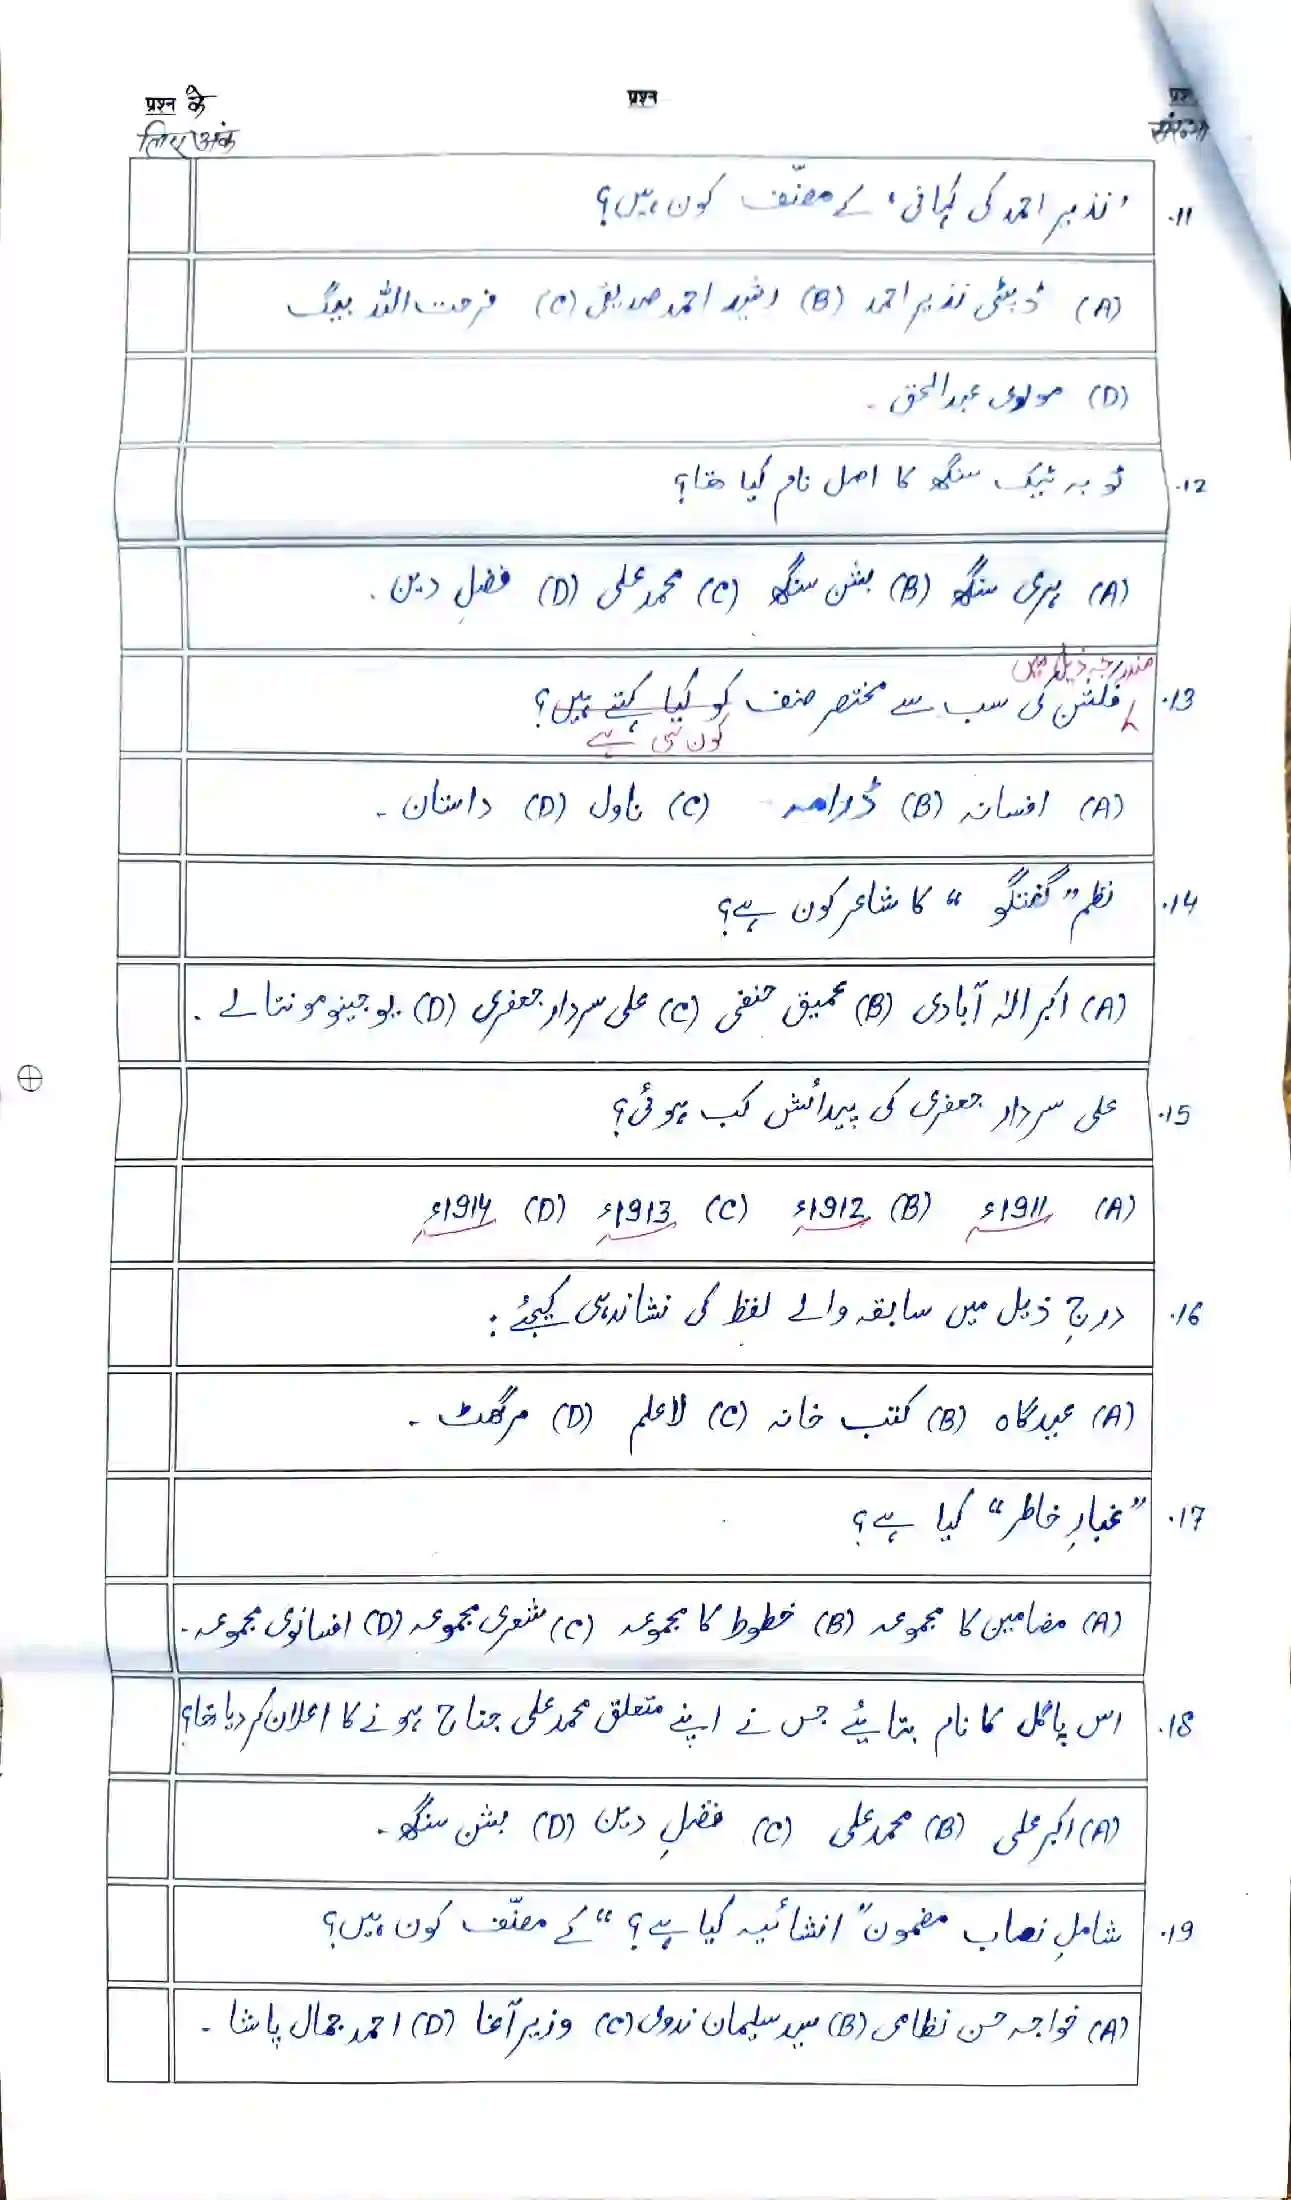 प्रश्न के
लिए अंक
प्रश्न
प्रश्न
संख्या
11. 'نذیر احمد کی کہانی' کے مصنّف کون ہیں؟
(A) ڈپٹی نذیر احمد (B) رشید احمد صدیقی (C) فرحت اللہ بیگ
(D) مولوی عبدالحق ۔
12. ٹوبہ ٹیک سنگھ کا اصل نام کیا تھا؟
(A) ہری سنگھ (B) بشن سنگھ (C) محمد علی (D) فضلِ دین ۔
مندرجہ ذیل میں
13. فکشن کی سب سے مختصر صنف کو کیا کہتے ہیں؟
کون سی ہے
(A) افسانہ (B) ڈرامہ (C) ناول (D) داستان ۔
14. نظم "گفتگو" کا شاعر کون ہے؟
(A) اکبر الہ آبادی (B) عمیق حنفی (C) علی سردار جعفری (D) یوجینو مونتالے ۔
15. علی سردار جعفری کی پیدائش کب ہوئی؟
(A) 1911ء (B) 1912ء (C) 1913ء (D) 1914ء
16. درجِ ذیل میں سابقہ والے لفظ کی نشاندہی کیجئے :
(A) عیدگاہ (B) کتب خانہ (C) لاعلم (D) مرگھٹ ۔
17. "غبارِ خاطر" کیا ہے؟
(A) مضامین کا مجموعہ (B) خطوط کا مجموعہ (C) شعری مجموعہ (D) افسانوی مجموعہ ۔
18. اس پاگل کا نام بتایئے جس نے اپنے متعلق محمد علی جناح ہونے کا اعلان کر دیا تھا؟
(A) اکبر علی (B) محمد علی (C) فضلِ دین (D) بشن سنگھ ۔
19. شاملِ نصاب مضمون "انشائیہ کیا ہے؟" کے مصنّف کون ہیں؟
(A) خواجہ حسن نظامی (B) سید سلیمان ندوی (C) وزیر آغا (D) احمد جمال پاشا ۔